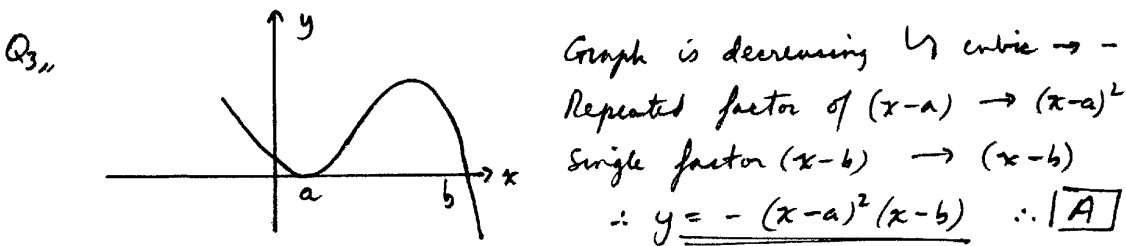 Q3,,
y
x
a
b
Graph is decreasing ↳ cubic → -
Repeated factor of (x-a) → (x-a)²
Single factor (x-b) → (x-b)
∴ y = - (x-a)² (x-b) ∴ A